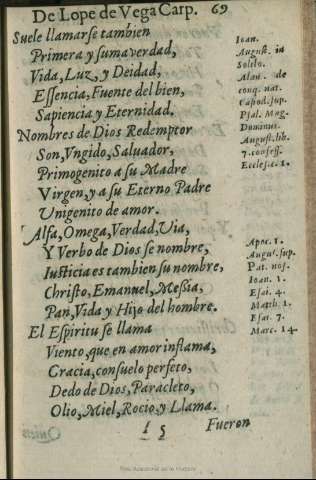 De Lope de Vega Carp. 69
Suele llamarse tambien
Primera y suma verdad,
Vida, Luz, y Deidad,
Essencia, Fuente del bien,
Sapiencia y Eternidad.
Nombres de Dios Redemptor
Son, Vngido, Saluador,
Primogenito a su Madre
Virgen, y a su Eterno Padre
Unigenito de amor.
Alfa, Omega, Verdad, Via,
Y Verbo de Dios se nombre,
Iusticia es tambien su nombre,
Christo, Emanuel, Messia,
Pan, Vida y Hijo del hombre.
El Espiritu se llama
Viento, que en amor inflama,
Gracia, consuelo perfeto,
Dedo de Dios, Paracleto,
Olio, Miel, Rocio, y Llama.
I 5
Fueron
Ioan.
August. in
Solilo.
Alan. de
conq. nat.
sup.
Psal. Mag.
Dominus.
August. lib.
7. confess.
Eccles. c. 1.
Apoc. 1.
Augus. sup.
Pat. nos.
Ioan. 1.
Esai. 4.
Matth. 1.
Esai. 7.
Marc. 14.